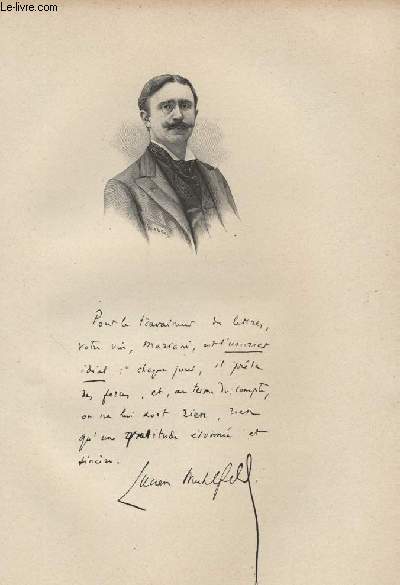 Le-livre.com
Pour le travailleur de lettres,
votre vin, Mariani, est l'usurier
idéal : chaque jour, il prête
des forces, et, au terme du compte,
on ne lui doit rien, rien
qu'une gratitude étonnée et
sincère.
Lucien Muhlfeld.